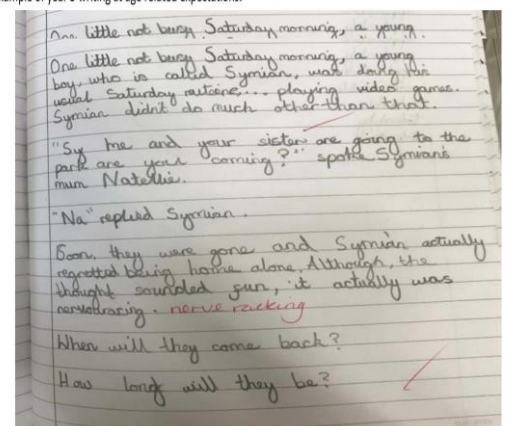 One little not busy Saturday morning, a young
One little not busy Saturday morning, a young
boy, who is called Symian, was doing his
usual Saturday routeine... playing video games.
Symian didn't do much other than that.
"Sy me and your sister are going to the
park are you coming?" spoke Symian's
mum Natellie.
"Na" replied Symian.
Soon, they were gone and Symian actually
regretted being home alone. Although, the
thought sounded fun, it actually was
nerve racking
When will they come back?
How long will they be?